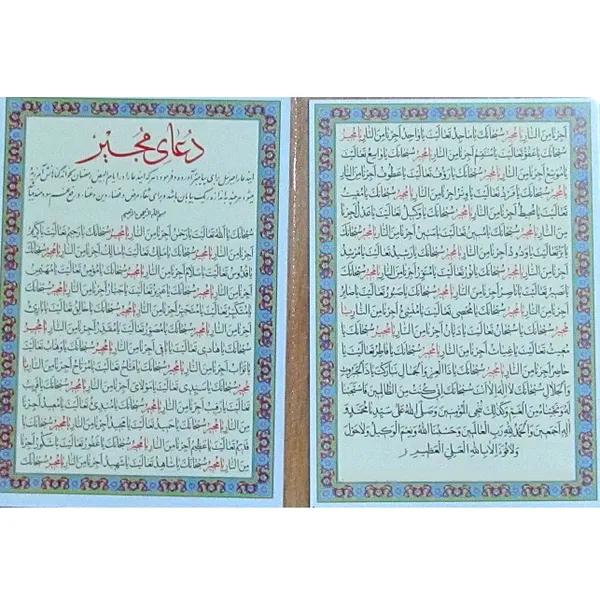 دعای مجیر
بسم الله الرحمن الرحیم
سُبْحانَكَ یا اَللهُ تَعالَیْتَ یا رَحْمٰنُ اَجِرْنا مِنَ النّارِ یا مُجیرُ سُبْحانَكَ یا رَحیمُ تَعالَیْتَ یا كَریمُ
اَجِرْنا مِنَ النّارِ یا مُجیرُ سُبْحانَكَ یا مَلِكُ تَعالَیْتَ یا مالِكُ اَجِرْنا مِنَ النّارِ یا مُجیرُ سُبْحانَكَ
یا قُدُّوسُ تَعالَیْتَ یا سَلامُ اَجِرْنا مِنَ النّارِ یا مُجیرُ سُبْحانَكَ یا مُؤْمِنُ تَعالَیْتَ یا مُهَیْمِنُ
اَجِرْنا مِنَ النّارِ یا مُجیرُ سُبْحانَكَ یا عَزیزُ تَعالَیْتَ یا جَبّارُ اَجِرْنا مِنَ النّارِ یا مُجیرُ سُبْحانَكَ یا
مُتَكَبِّرُ تَعالَیْتَ یا مُتَجَبِّرُ اَجِرْنا مِنَ النّارِ یا مُجیرُ سُبْحانَكَ یا خالِقُ تَعالَیْتَ یا بارِئُ
اَجِرْنا مِنَ النّارِ یا مُجیرُ سُبْحانَكَ یا مُصَوِّرُ تَعالَیْتَ یا مُقَدِّرُ اَجِرْنا مِنَ النّارِ یا مُجیرُ
سُبْحانَكَ یا هادی تَعالَیْتَ یا باقی اَجِرْنا مِنَ النّارِ یا مُجیرُ سُبْحانَكَ یا وَهّابُ تَعالَیْتَ
یا تَوّابُ اَجِرْنا مِنَ النّارِ یا مُجیرُ سُبْحانَكَ یا فَتّاحُ تَعالَیْتَ یا مُرْتاحُ اَجِرْنا مِنَ النّارِ یا
مُجیرُ سُبْحانَكَ یا سَیِّدی تَعالَیْتَ یا مَوْلایَ اَجِرْنا مِنَ النّارِ یا مُجیرُ سُبْحانَكَ یا قَریبُ
تَعالَیْتَ یا رَقیبُ اَجِرْنا مِنَ النّارِ یا مُجیرُ سُبْحانَكَ یا مُبْدِئُ تَعالَیْتَ یا مُعیدُ اَجِرْنا
مِنَ النّارِ یا مُجیرُ سُبْحانَكَ یا حَمیدُ تَعالَیْتَ یا مَجیدُ اَجِرْنا مِنَ النّارِ یا مُجیرُ سُبْحانَكَ یا
قَدیمُ تَعالَیْتَ یا عَظیمُ اَجِرْنا مِنَ النّارِ یا مُجیرُ سُبْحانَكَ یا غَفُورُ تَعالَیْتَ یا شَكُورُ اَجِرْنا
مِنَ النّارِ یا مُجیرُ سُبْحانَكَ یا شاهِدُ تَعالَیْتَ یا شَهیدُ اَجِرْنا مِنَ النّارِ یا مُجیرُ سُبْحانَكَ
اَجِرْنا مِنَ النّارِ یا مُجیرُ سُبْحانَكَ یا ماجِدُ تَعالَیْتَ یا واحِدُ اَجِرْنا مِنَ النّارِ یا مُجیرُ
سُبْحانَكَ یا عَفُوُّ تَعالَیْتَ یا مُنْتَقِمُ اَجِرْنا مِنَ النّارِ یا مُجیرُ سُبْحانَكَ یا واسِعُ تَعالَیْتَ
یا مُوَسِّعُ اَجِرْنا مِنَ النّارِ یا مُجیرُ سُبْحانَكَ یا رَؤُفُ تَعالَیْتَ یا عَطُوفُ اَجِرْنا مِنَ النّارِ یا مُجیرُ
تَعالَیْتَ یا مُحیطُ اَجِرْنا مِنَ النّارِ یا مُجیرُ سُبْحانَكَ تَعالَیْتَ یا عَدْلُ اَجِرْنا
مِنَ النّارِ یا مُجیرُ سُبْحانَكَ یا مُبینُ تَعالَیْتَ یا مَتینُ اَجِرْنا مِنَ النّارِ یا مُجیرُ سُبْحانَكَ
یا بَرُّ تَعالَیْتَ یا وَدُودُ اَجِرْنا مِنَ النّارِ یا مُجیرُ سُبْحانَكَ یا رَشیدُ تَعالَیْتَ یا مُرْشِدُ
اَجِرْنا مِنَ النّارِ یا مُجیرُ سُبْحانَكَ یا نُورُ تَعالَیْتَ یا مُنَوِّرُ اَجِرْنا مِنَ النّارِ یا مُجیرُ سُبْحانَكَ
یا نَصیرُ تَعالَیْتَ یا ناصِرُ اَجِرْنا مِنَ النّارِ یا مُجیرُ سُبْحانَكَ یا صَبُورُ تَعالَیْتَ یا صابِرُ
اَجِرْنا مِنَ النّارِ یا مُجیرُ سُبْحانَكَ یا مُحْصی تَعالَیْتَ یا مُنْشِئُ اَجِرْنا مِنَ النّارِ یا
مُجیرُ سُبْحانَكَ یا سُبْحانُ تَعالَیْتَ یا دَیّانُ اَجِرْنا مِنَ النّارِ یا مُجیرُ سُبْحانَكَ یا
مُغیثُ تَعالَیْتَ یا غِیاثُ اَجِرْنا مِنَ النّارِ یا مُجیرُ سُبْحانَكَ یا فاطِرُ تَعالَیْتَ یا
حاضِرُ اَجِرْنا مِنَ النّارِ یا مُجیرُ سُبْحانَكَ یا ذَا الْعِزِّ وَالْجَمالِ تَبارَكْتَ یا ذَا الْجَبَرُوتِ
وَالْجَلالِ سُبْحانَكَ لا اِلٰهَ اِلّا اَنْتَ سُبْحانَكَ اِنّی كُنْتُ مِنَ الظّالِمینَ فَاسْتَجَبْنا
لَهُ وَنَجَّیْناهُ مِنَ الْغَمِّ وَكَذٰلِكَ نُنْجِی الْمُؤْمِنینَ وَصَلَّی اللهُ عَلٰی سَیِّدِنا مُحَمَّدٍ وَ
اٰلِهِ اَجْمَعینَ وَالْحَمْدُ لِلّٰهِ رَبِّ الْعالَمینَ وَحَسْبُنَا اللهُ وَنِعْمَ الْوَكیلُ وَلا حَوْلَ
وَلا قُوَّةَ اِلّا بِاللهِ الْعَلِیِّ الْعَظیمِ